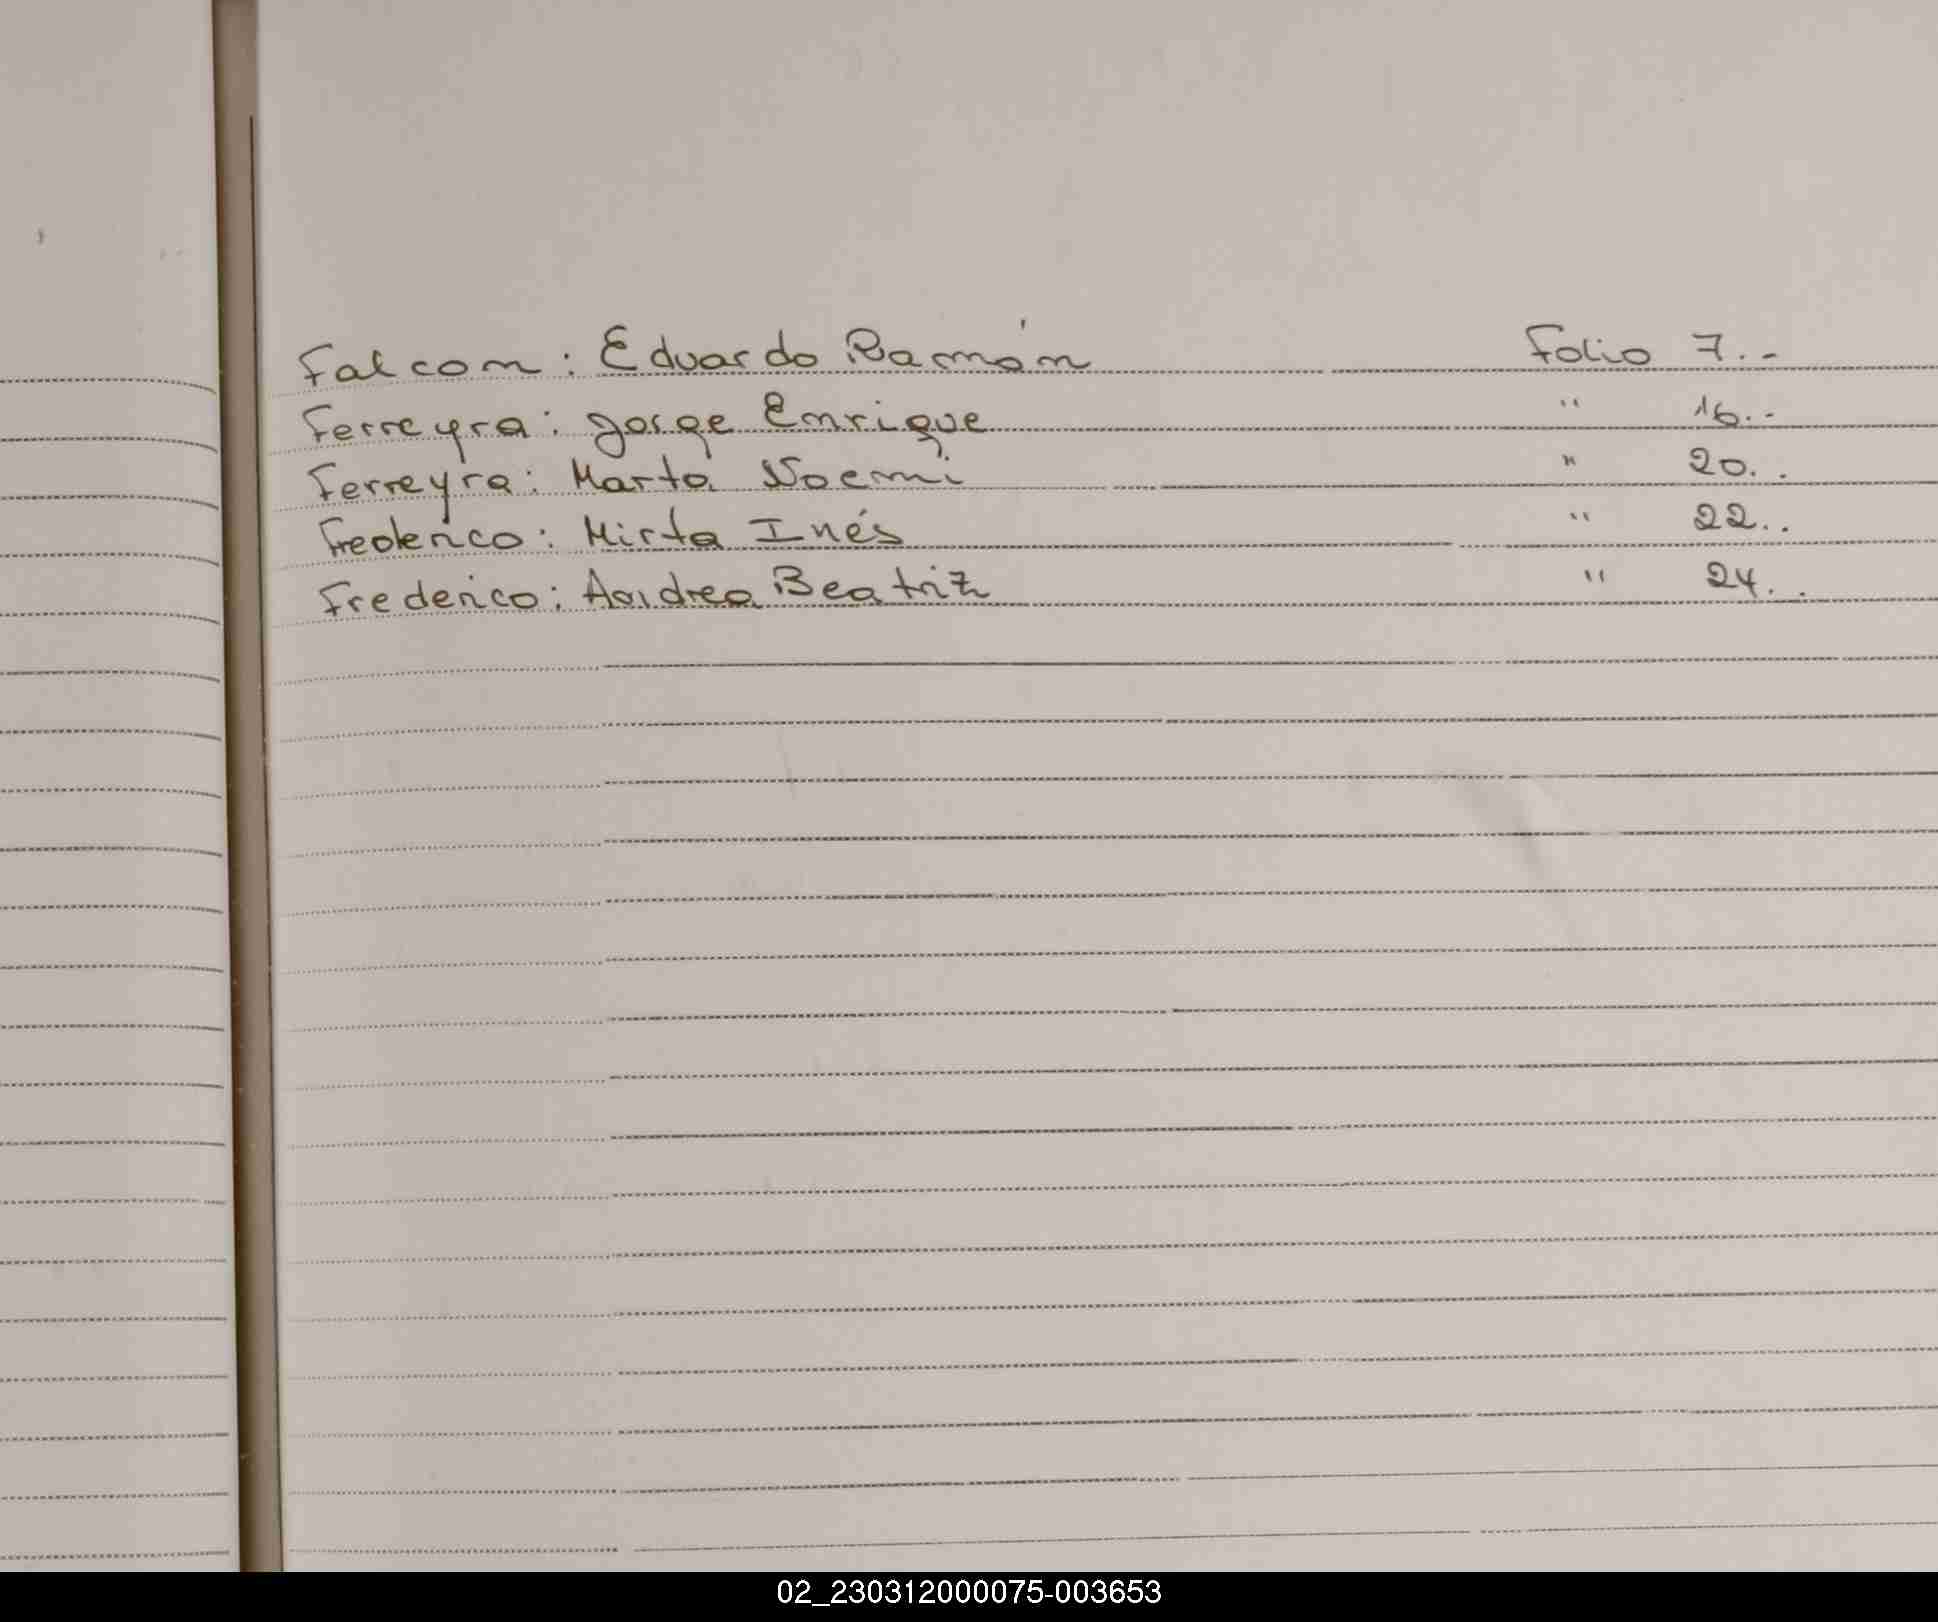 Falcom: Eduardo Ramón Folio 7.-
Ferreyra: Jorge Enrique " 16.-
Ferreyra: Marta Noemi " 20..
Frederico: Mirta Inés " 22..
Frederico: Andrea Beatriz " 24..
02_230312000075-003653